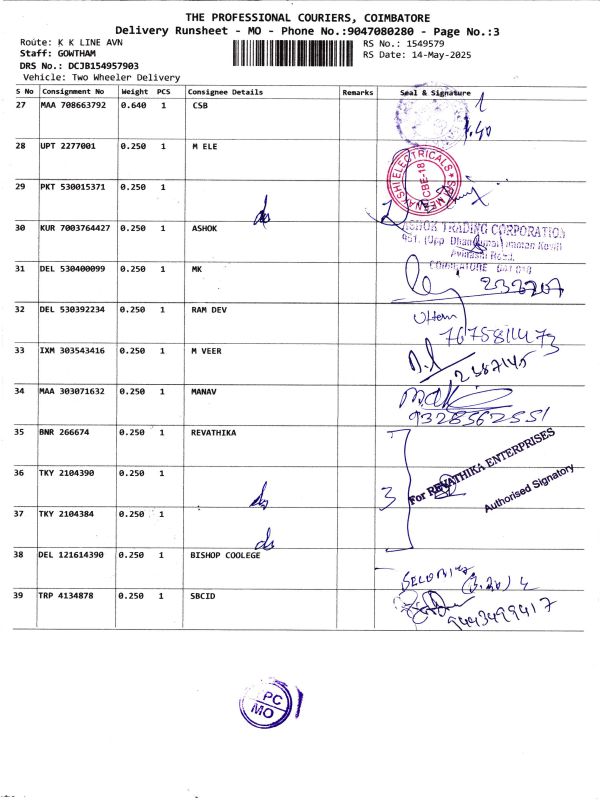 THE PROFESSIONAL COURIERS, COIMBATORE
Delivery Runsheet - MO - Phone No.:9047080280 - Page No.:3
Route: K K LINE AVN
RS No.: 1549579
Staff: GOWTHAM
RS Date: 14-May-2025
DRS No.: DCJB154957903
Vehicle: Two Wheeler Delivery
S No Consignment No Weight PCS Consignee Details Remarks Seal & Signature
27 MAA 708663792 0.640 1 CSB 1
28 UPT 2277001 0.250 1 M ELE
SRI MEENAKSHI ELECTRICALS CBE-18
29 PKT 530015371 0.250 1
ds
30 KUR 7003764427 0.250 1 ASHOK
ASHOK TRADING CORPORATION
951, (Opp.
Avinashi Road,
COIMBATORE
31 DEL 530400099 0.250 1 MK
32 DEL 530392234 0.250 1 RAM DEV
Uttam
33 IXM 303543416 0.250 1 M VEER
34 MAA 303071632 0.250 1 MANAV
9328562551
35 BNR 266674 0.250 1 REVATHIKA
For REVATHIKA ENTERPRISES
Authorised Signatory
36 TKY 2104390 0.250 1 3
ds
37 TKY 2104384 0.250 1
ds
38 DEL 121614390 0.250 1 BISHOP COOLEGE
39 TRP 4134878 0.250 1 SBCID
9443499417
PC
MO